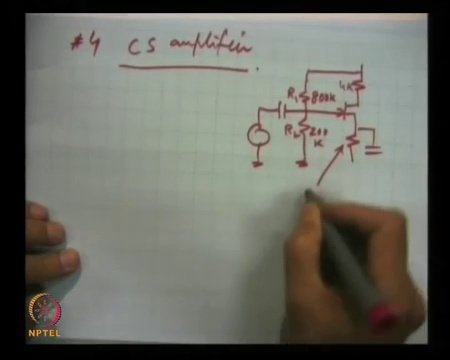 #4 CS amplifier
4K
R1 800K
R2 200
K
NPTEL